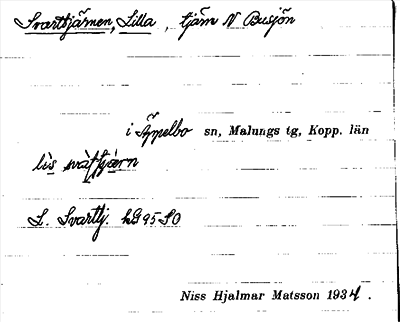 Svarttjärnen, Lilla, tjärn N Busjön
i Äppelbo sn, Malungs tg, Kopp. län
S. Svarttj.
Niss Hjalmar Matsson 1934.